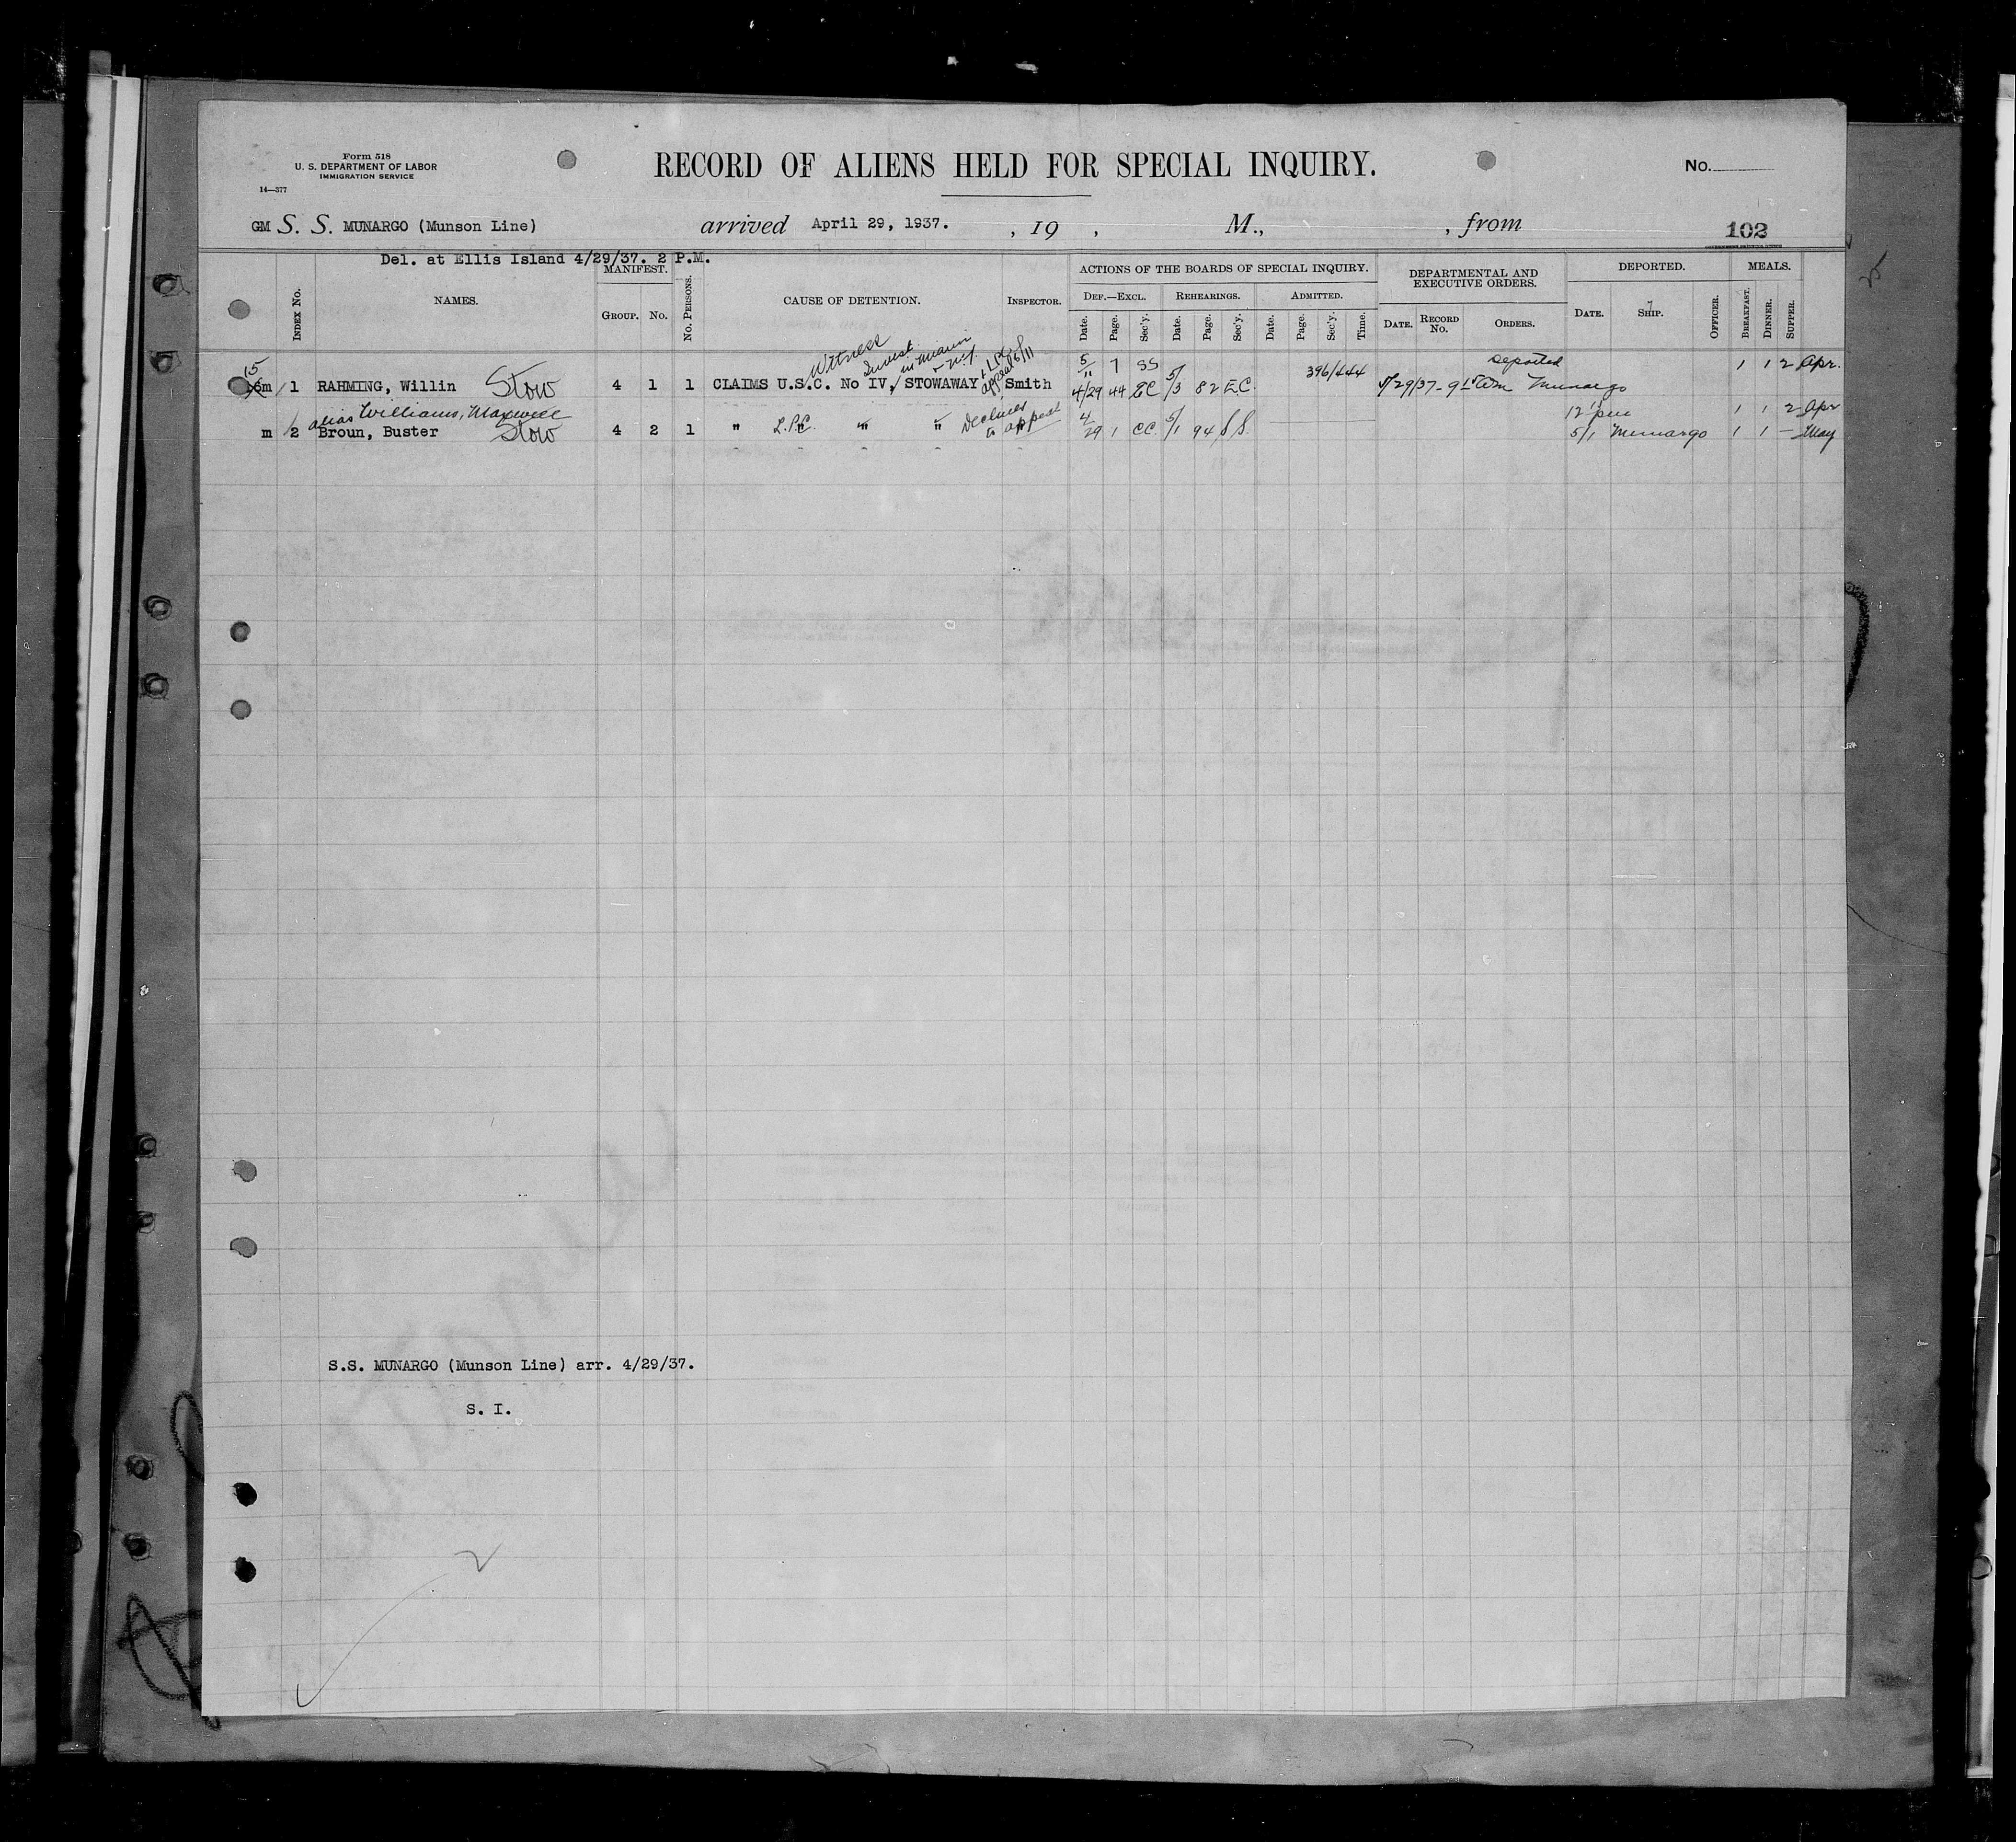 Form 518
U. S. DEPARTMENT OF LABOR
IMMIGRATION SERVICE
14—377
RECORD OF ALIENS HELD FOR SPECIAL INQUIRY.
No.
GM S. S. MUNARGO (Munson Line) arrived April 29, 1937. , 19 , M., , from 102
Del. at Ellis Island 4/29/37. 2 P.M.
INDEX No. NAMES. MANIFEST. GROUP. No. No. PERSONS. CAUSE OF DETENTION. INSPECTOR. ACTIONS OF THE BOARDS OF SPECIAL INQUIRY. DEPARTMENTAL AND EXECUTIVE ORDERS. DEPORTED. MEALS.
DEF.—EXCL. REHEARINGS. ADMITTED.
Date. Page. Sec'y. Date. Page. Sec'y. Date. Page. Sec'y. Time. DATE. RECORD No. ORDERS. DATE. SHIP. OFFICER. BREAKFAST. DINNER. SUPPER.
Witness Invest. in Miami
+ LPC appeal 5/11
15 5/11 7 SS 396/444 Deported 1 1 2 Apr.
m 1 RAHMING, Willin Stow 4 1 1 CLAIMS U.S.C. No IV, STOWAWAY Smith 4/29 44 EC 5/3 82 E.C. 5/29/37 - Munargo
alias Williams, Maxwell Declines to appeal 12 pm 1 1 2 Apr
m 2 Broun, Buster Stow 4 2 1 " L.P.C. " " 4/29 1 CC 5/1 94 SS. 5/1 Munargo 1 1 — May
S.S. MUNARGO (Munson Line) arr. 4/29/37.
S. I.
2